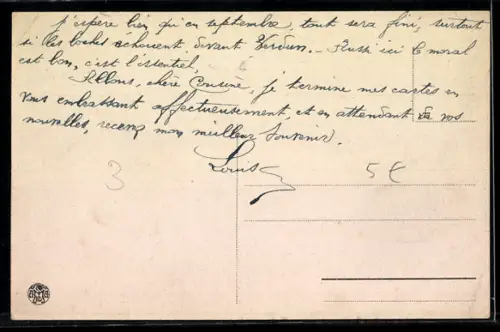 j'espère bien qu'en septembre, tout sera fini, surtout
si les boches échouent devant Verdun. Aussi ici le moral
est bon, c'est l'essentiel.
Allons, chère Cousine, je termine mes cartes en
vous embrassant affectueusement, et en attendant de vos
nouvelles, recevez mon meilleur souvenir.
Louis
3
5€